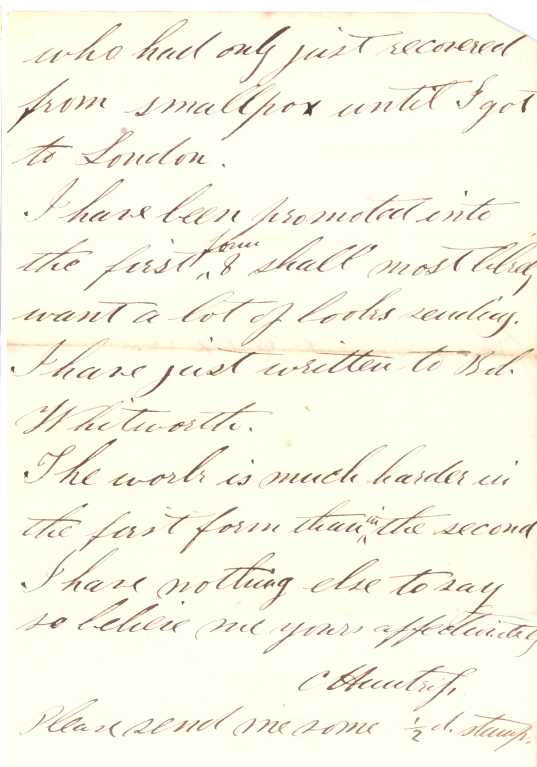 who had only just recovered
from smallpox until I got
to London.
I have been promoted into
the first form & shall most
want a lot of books sending.
I have just written to Bob
Whitworth.
The work is much harder in
the first form than in the second
I have nothing else to say
so believe me yours affectionately
C
Please send me some ½d. stamps.